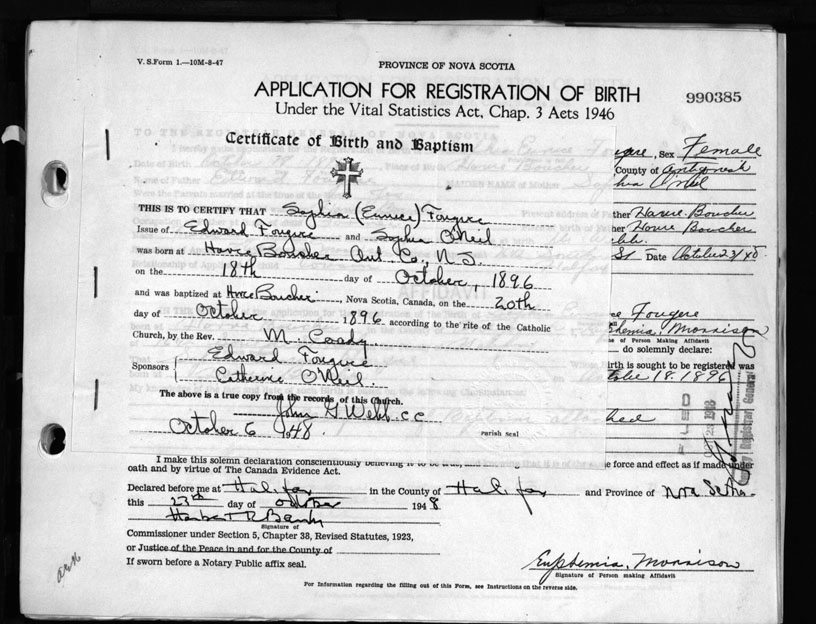 V. S. Form 1.—10M-8-47
PROVINCE OF NOVA SCOTIA
APPLICATION FOR REGISTRATION OF BIRTH
990385
Under the Vital Statistics Act, Chap. 3 Acts 1946
Certificate of Birth and Baptism
THIS IS TO CERTIFY THAT Sophia (Eunice) Fougere
Issue of Edward Fougere and Sophia O'Neil
was born at Havre Boucher Ant. Co., N.S.
on the 18th day of October, 1896
and was baptized at Havre Boucher, Nova Scotia, Canada, on the 20th
day of October 1896 according to the rite of the Catholic
Church, by the Rev. M. Coady
Sponsors Edward Fougere
Catherine O'Neil.
The above is a true copy from the records of this Church.
John G Webb c c
October 6 1948.
parish seal
Fougere, Sex Female
County of Antigonish
Sophia O'Neil
Father Havre Boucher
Father Havre Boucher
St Date October 23/48
Fougere
Euphemia Morrison
of Person Making Affidavit
do solemnly declare:
birth is sought to be registered was
October 18. 1896
FILED
I make this solemn declaration conscientiously believing it to be true, and
same force and effect as if made under
oath and by virtue of The Canada Evidence Act.
Declared before me at Halifax in the County of Halifax and Province of Nova Scotia.
this 23rd day of October 1948
Signature of
Commissioner under Section 5, Chapter 38, Revised Statutes, 1923,
or Justice of the Peace in and for the County of
If sworn before a Notary Public affix seal.
Euphemia Morrison
Signature of Person making Affidavit
For Information regarding the filling out of this Form, see Instructions on the reverse side.